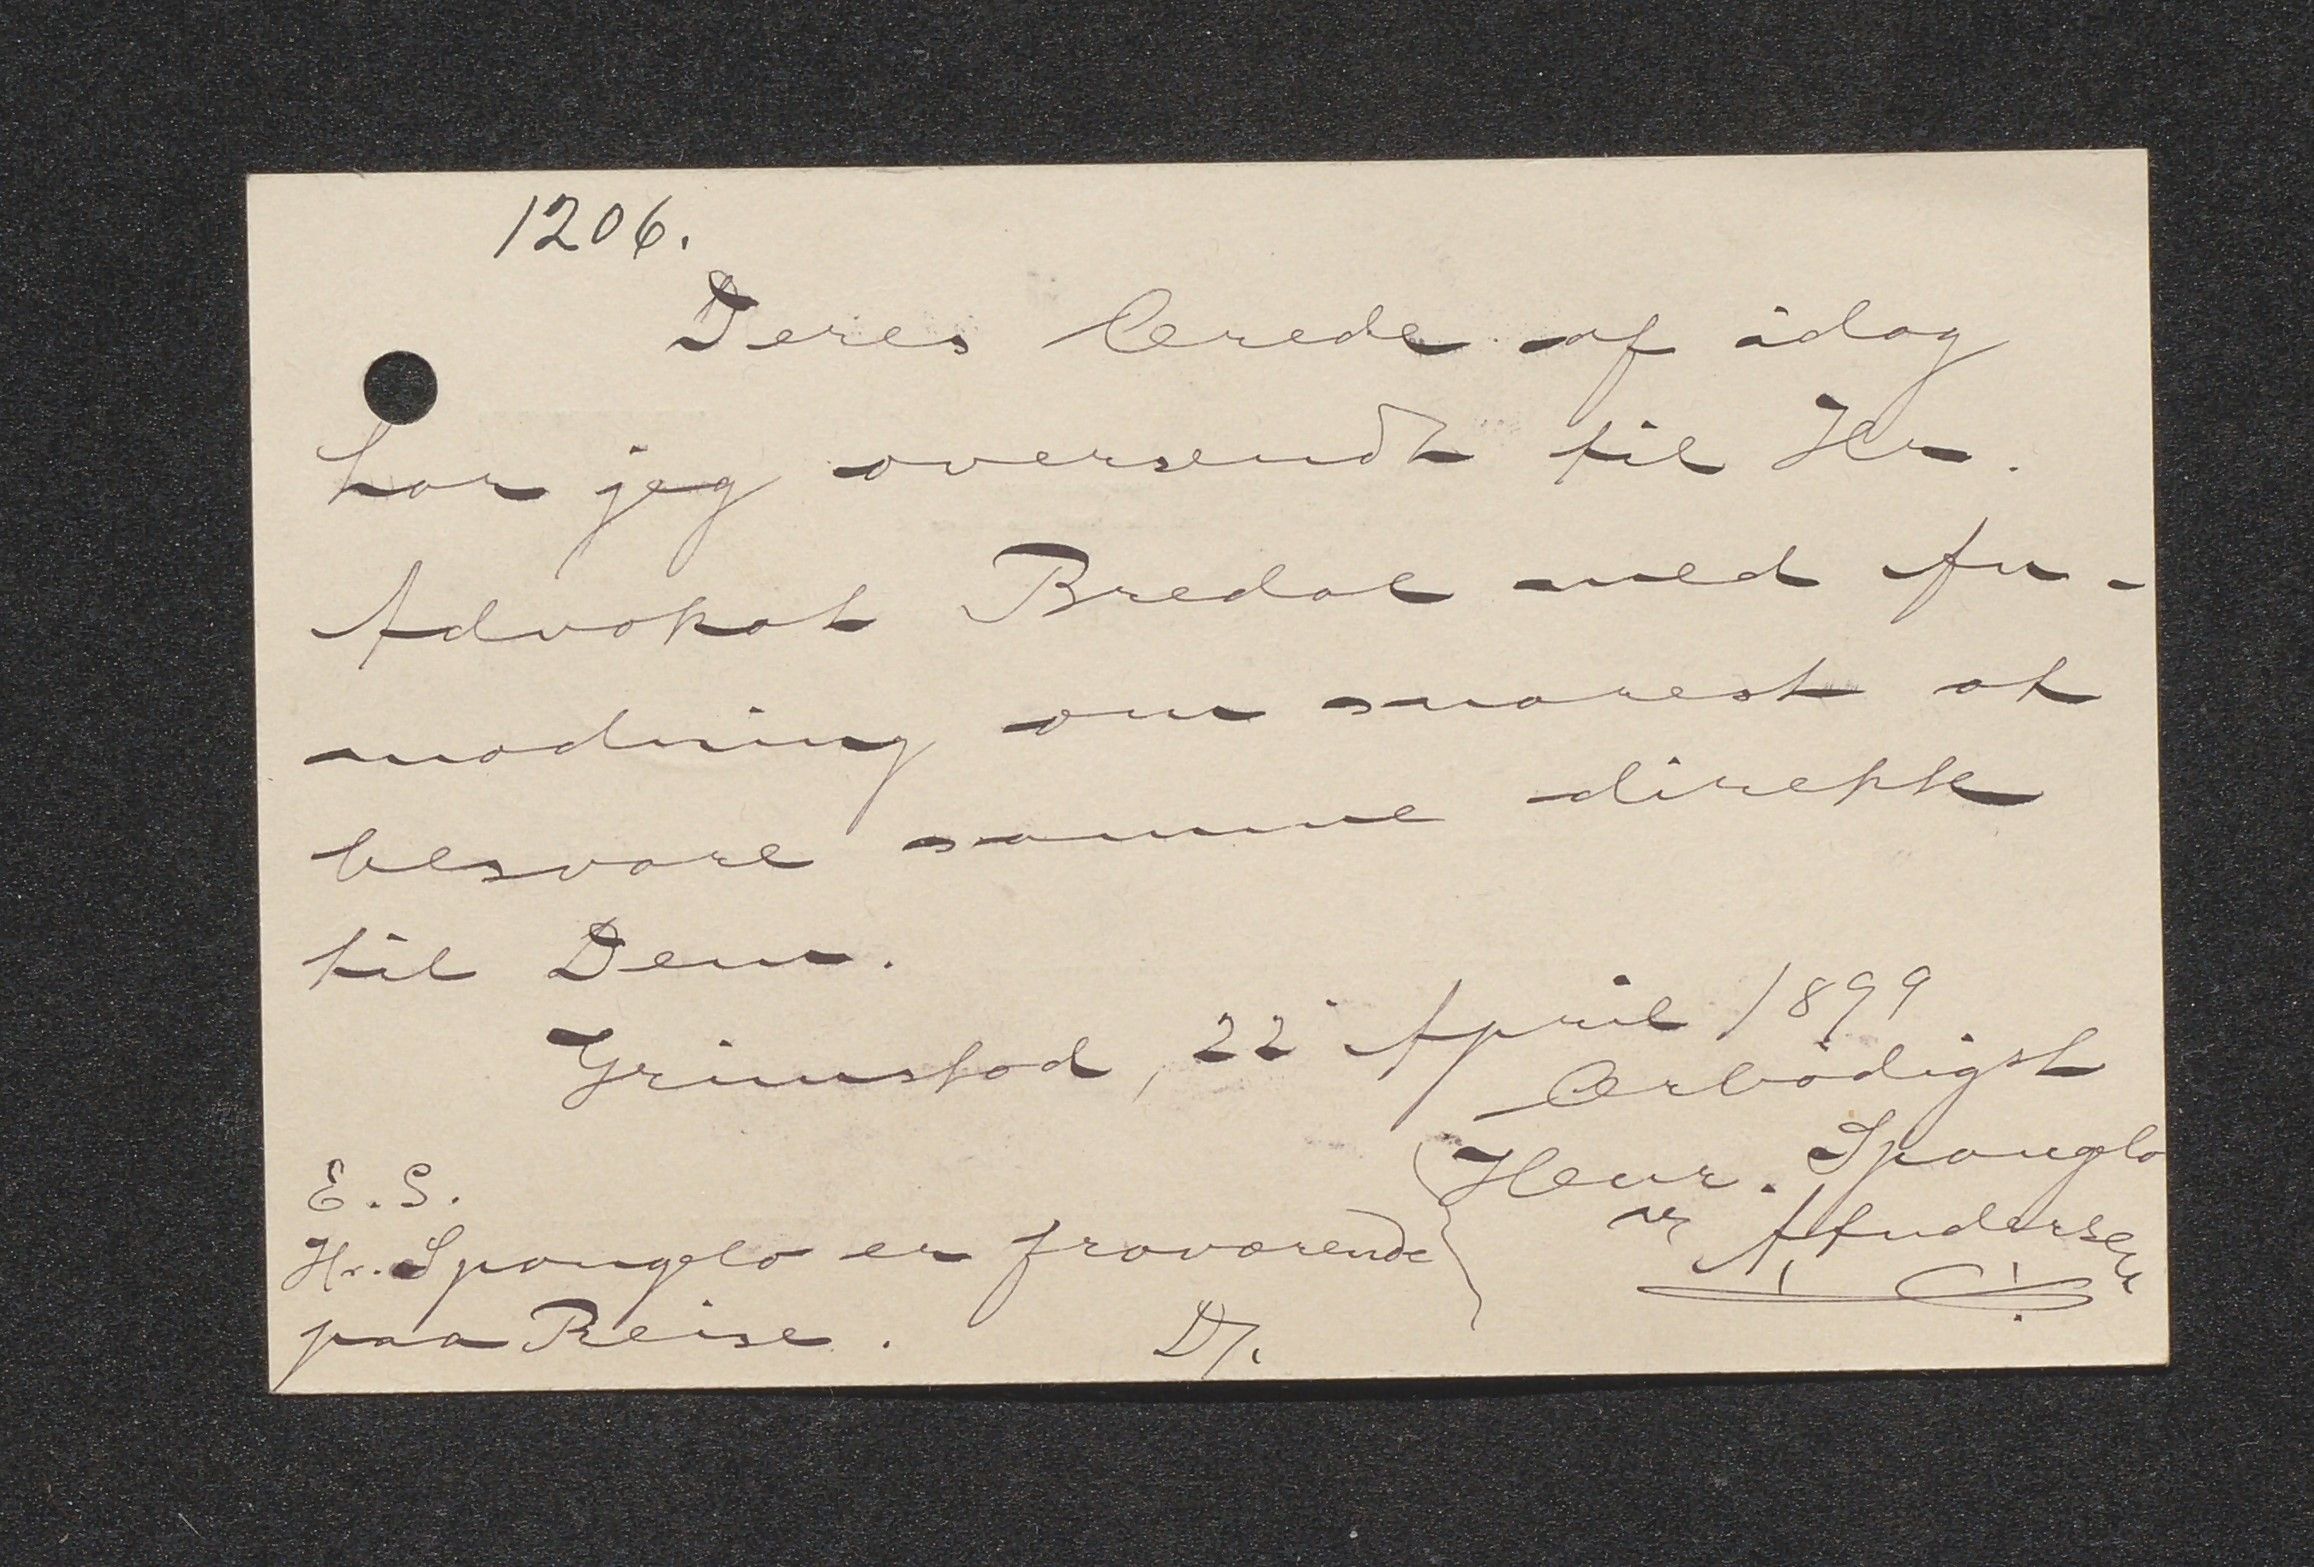 1206.
Deres Ærede af idag
har jeg oversendt til Hr.
Advokat Bredal med An-
modning om snarest at
besvare samme direkte
til Dem.
Grimstad, 22 April 1899
Ærbødigst
Henr. Spangelo
A Andersen
E. S.
Hr. Spangelo er fraværende
paa Reise. D/.